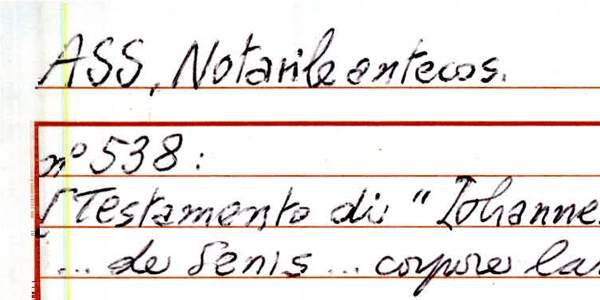 ASS, Notarile antecos.
n° 538:
[Testamento di "Iohanne
... de Senis ... corpore la